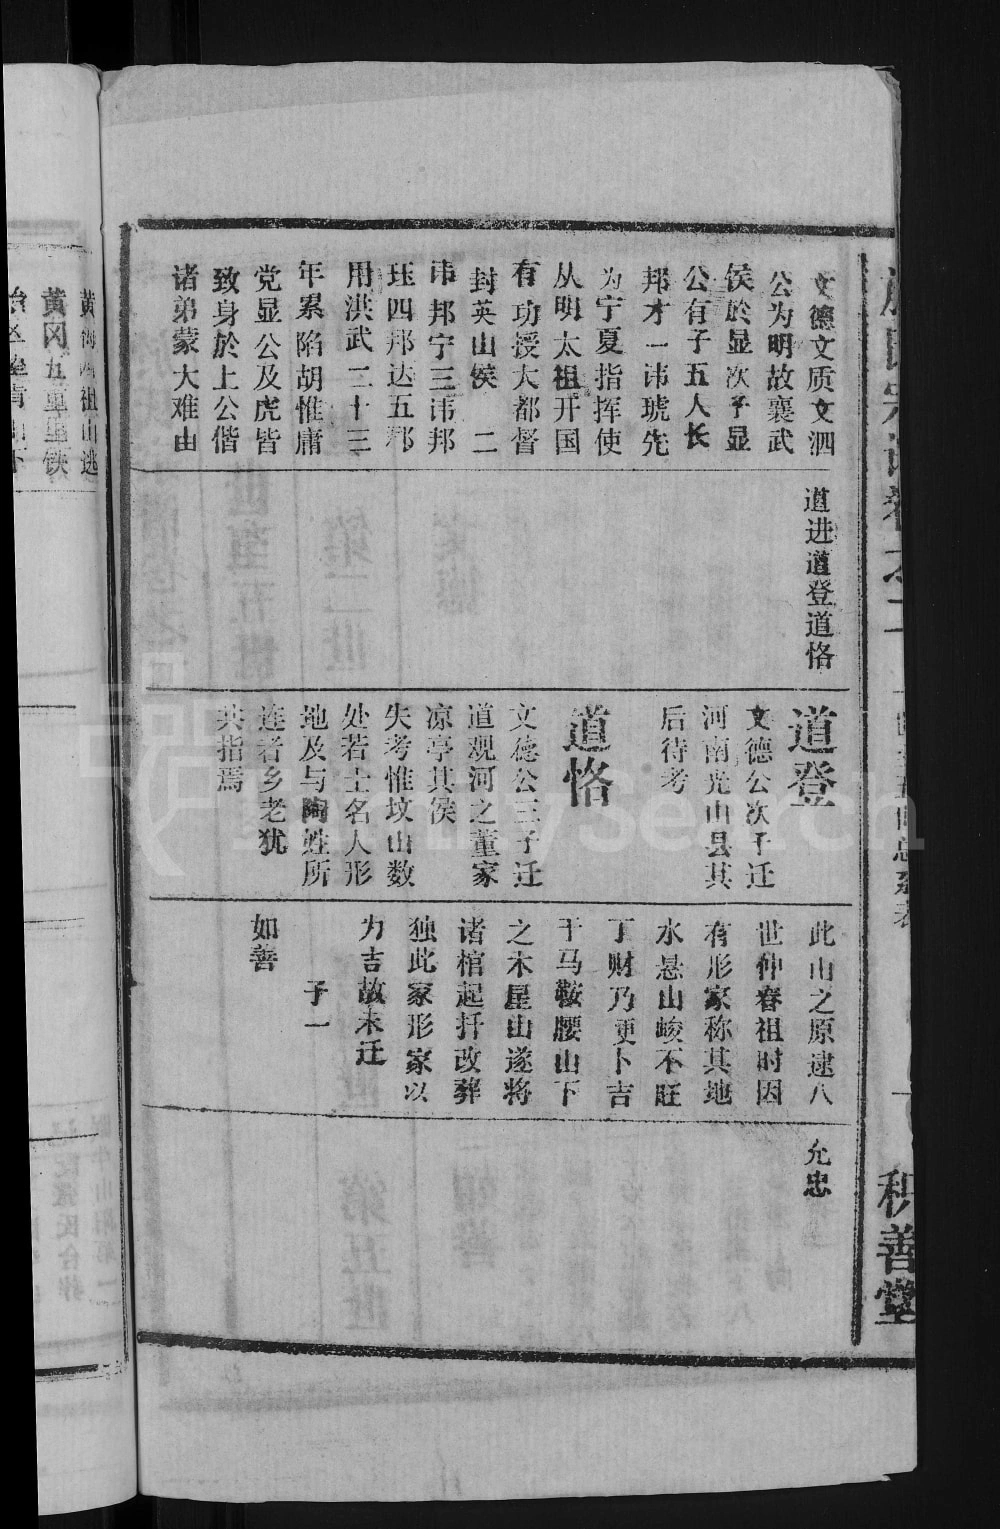 积善堂
文德文质文泗
公为明故襄武
侯於显次子显
公有子五人长
邦才一讳琥先
为宁夏指挥使
从明太祖开国
有功授大都督
封英山侯 二
讳邦宁三讳邦
珏四邦达五邦
用洪武二十三
年累陷胡惟庸
党显公及虎皆
致身於上公偕
诸弟蒙大难由
道进道登道恪
道登
文德公次子迁
河南光山县其
后待考
道恪
文德公三子迁
道观河之董家
凉亭其侯
失考惟坟山数
处若土名人形
地及与陶姓所
连者乡老犹
共指焉
此山之原逮八
世仲春祖时因
有形家称其地
水悬山峻不旺
丁财乃更卜吉
于马鞍腰山下
之木星山遂将
诸棺起扦改葬
独此家形家以
为吉故未迁
子一
如善
允忠